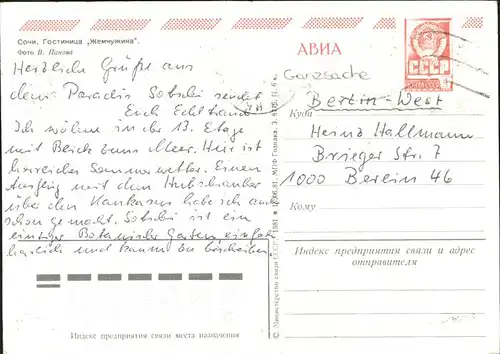 Сочи. Гостиница „Жемчужина".
Фото В. Панова
Herzliche Grüße aus
dem Paradis Sotschi sendet
Euch
Ich wohne in der 13. Etage
mit Blick zum Meer. Hier ist
herrliches Sommerwetter. Einen
Ausflug mit dem Hubschrauber
über den Kaukasus habe ich auch
schon gemacht. Sotschi ist ein
einziger Botanischer Garten, einfach
herrlich und kaum zu beschreiben.
Индекс предприятия связи места назначения
© Министерство связи СССР. 1981
АВИА
СССР
4
Ganzsache
Berlin-West
Куда
Heinz Hallmann
Brieger Str. 7
1000 Berlin 46
Кому
Индекс предприятия связи и адрес
отправителя